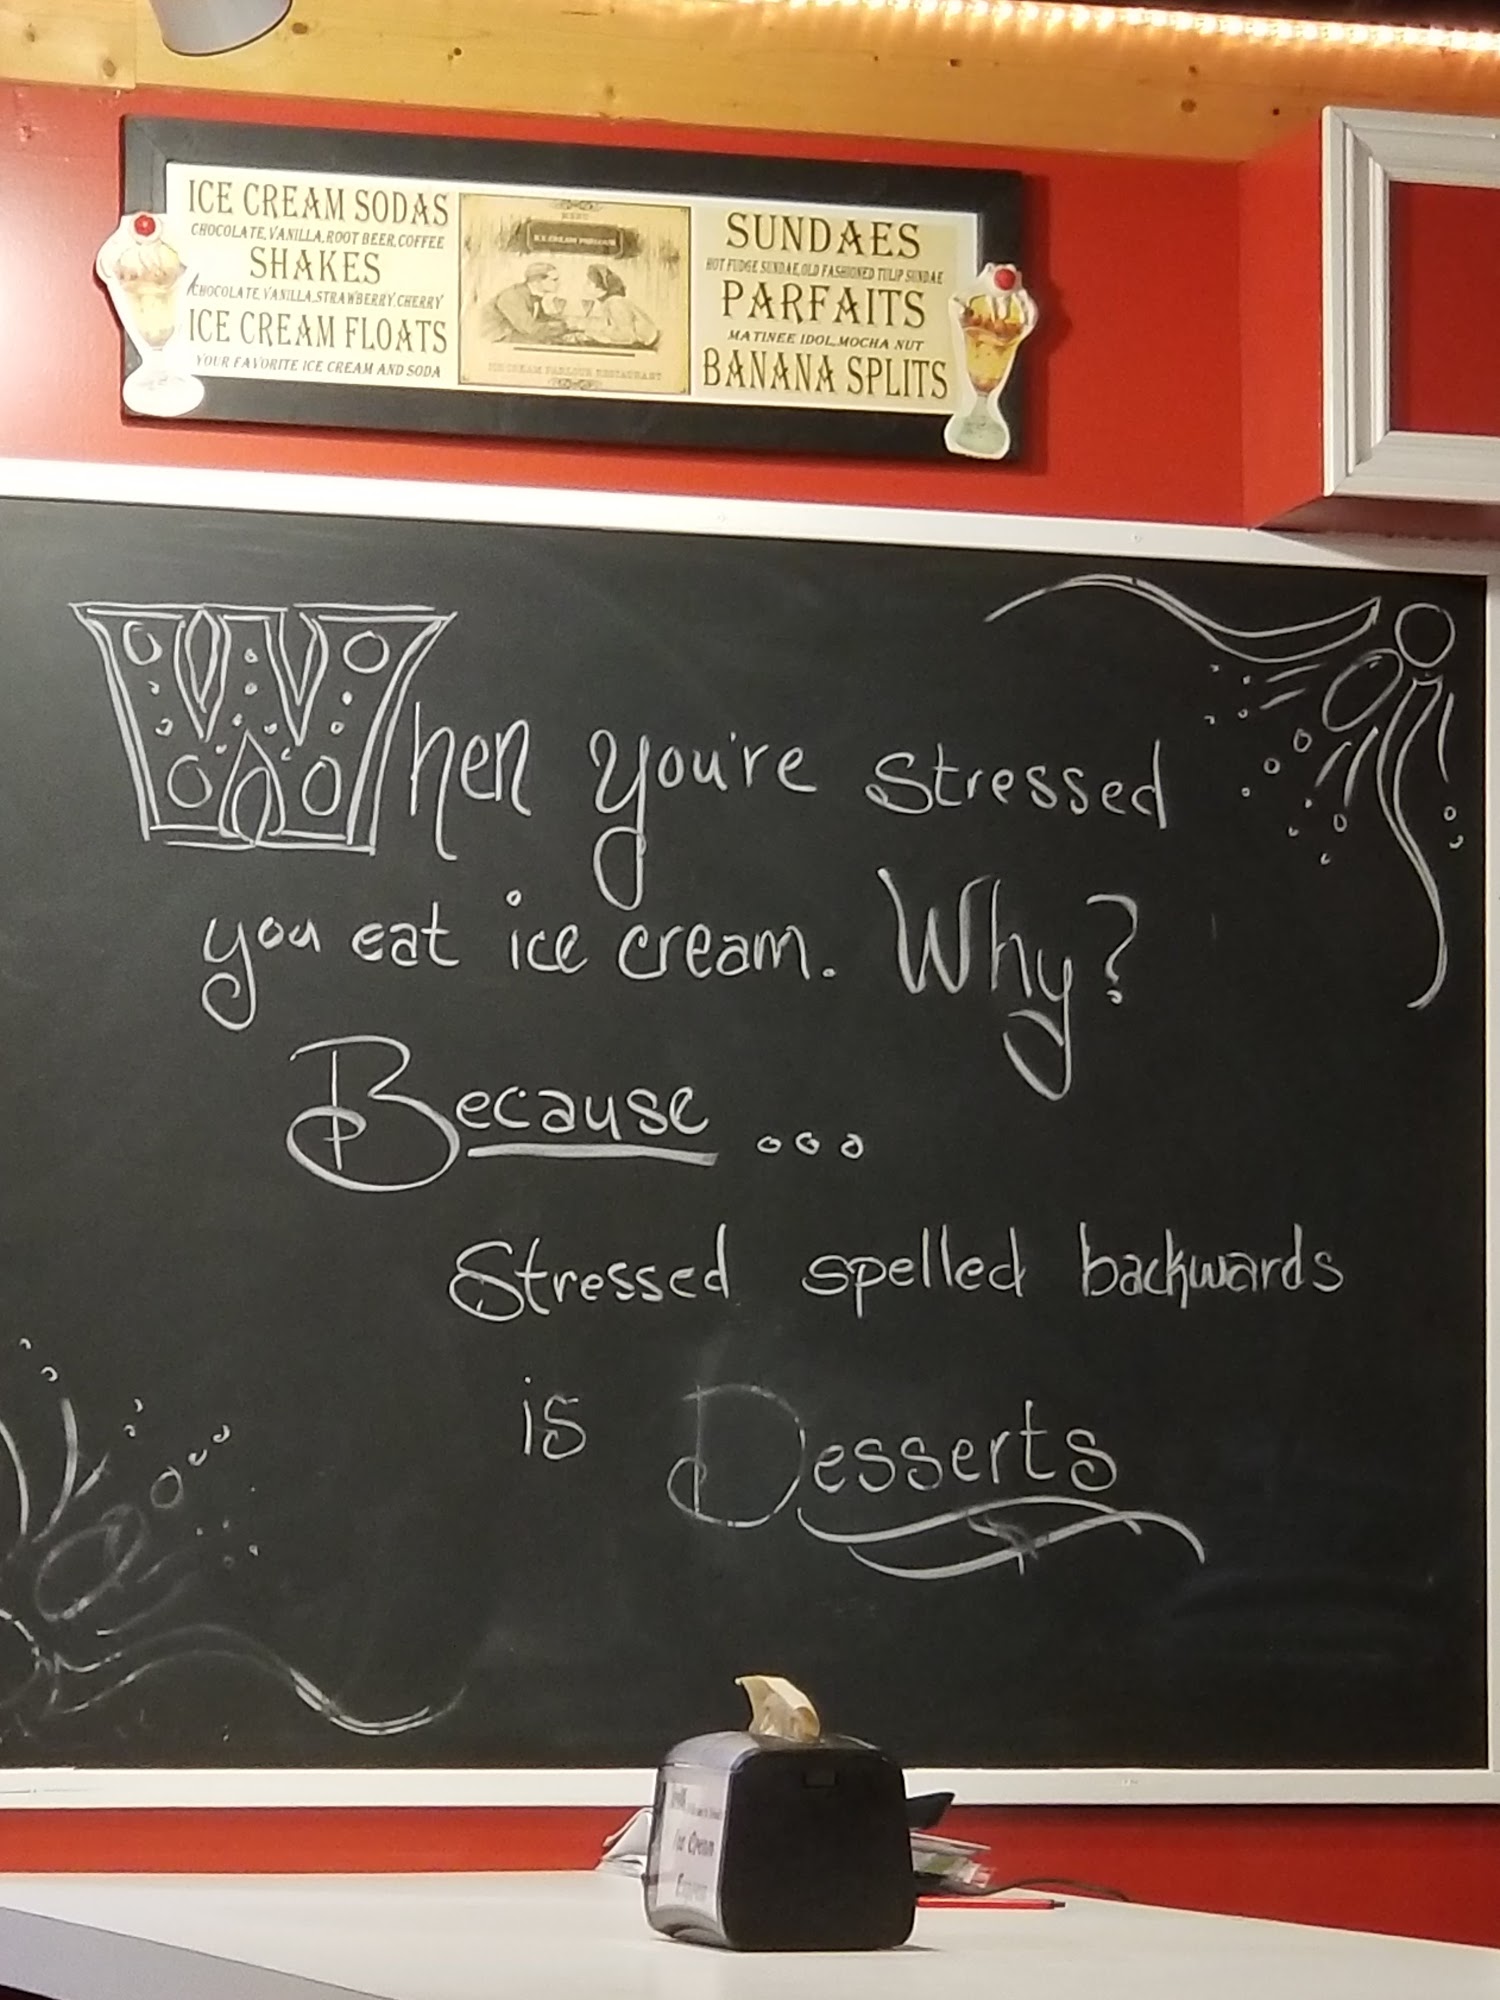 ICE CREAM SODAS
CHOCOLATE, VANILLA, ROOT BEER, COFFEE
SHAKES
CHOCOLATE, VANILLA, STRAWBERRY, CHERRY
ICE CREAM FLOATS
YOUR FAVORITE ICE CREAM AND SODA
MENU
ICE CREAM PARLOUR
ICE CREAM PARLOUR RESTAURANT
SUNDAES
HOT FUDGE SUNDAE, OLD FASHIONED TULIP SUNDAE
PARFAITS
MATINEE IDOL, MOCHA NUT
BANANA SPLITS
When you're stressed
you eat ice cream. Why?
Because ...
Stressed spelled backwards
is Desserts
Ice Cream